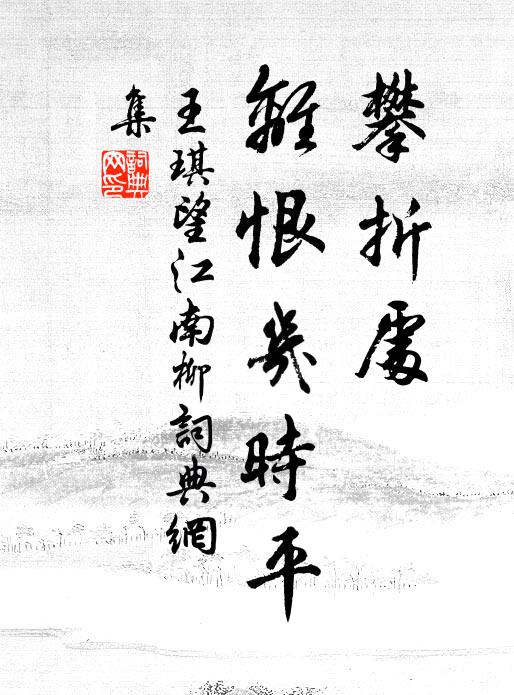 攀折處
離恨幾時平
王琪望江南柳詞典網
集
詞典
网印